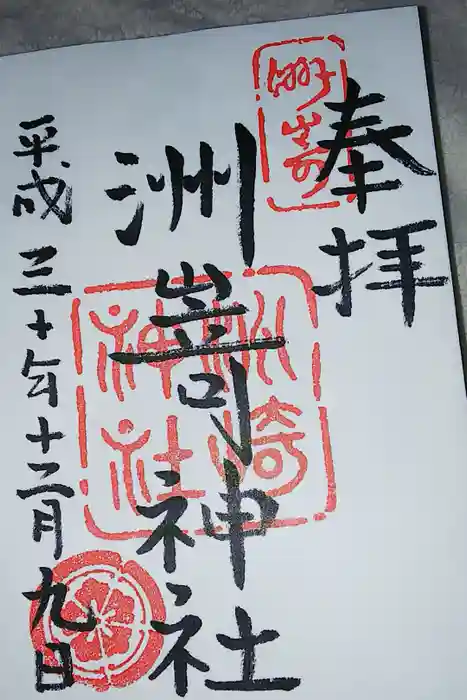 奉拝
洲嵜
洲嵜神社
洲崎神社
平成三十年十二月九日